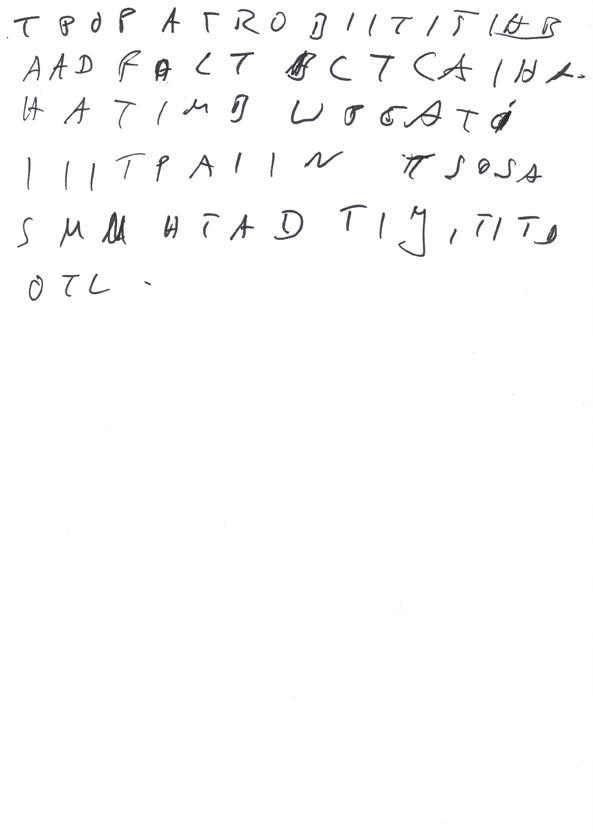 T P O P A T R O B I I T I T I A B
A A D F A L T B C T C A I H A.
H A T I M B U O O A T O
I I I T P A I I N π S O S A
S M M H T A D T I Y , T I T O
O T L .